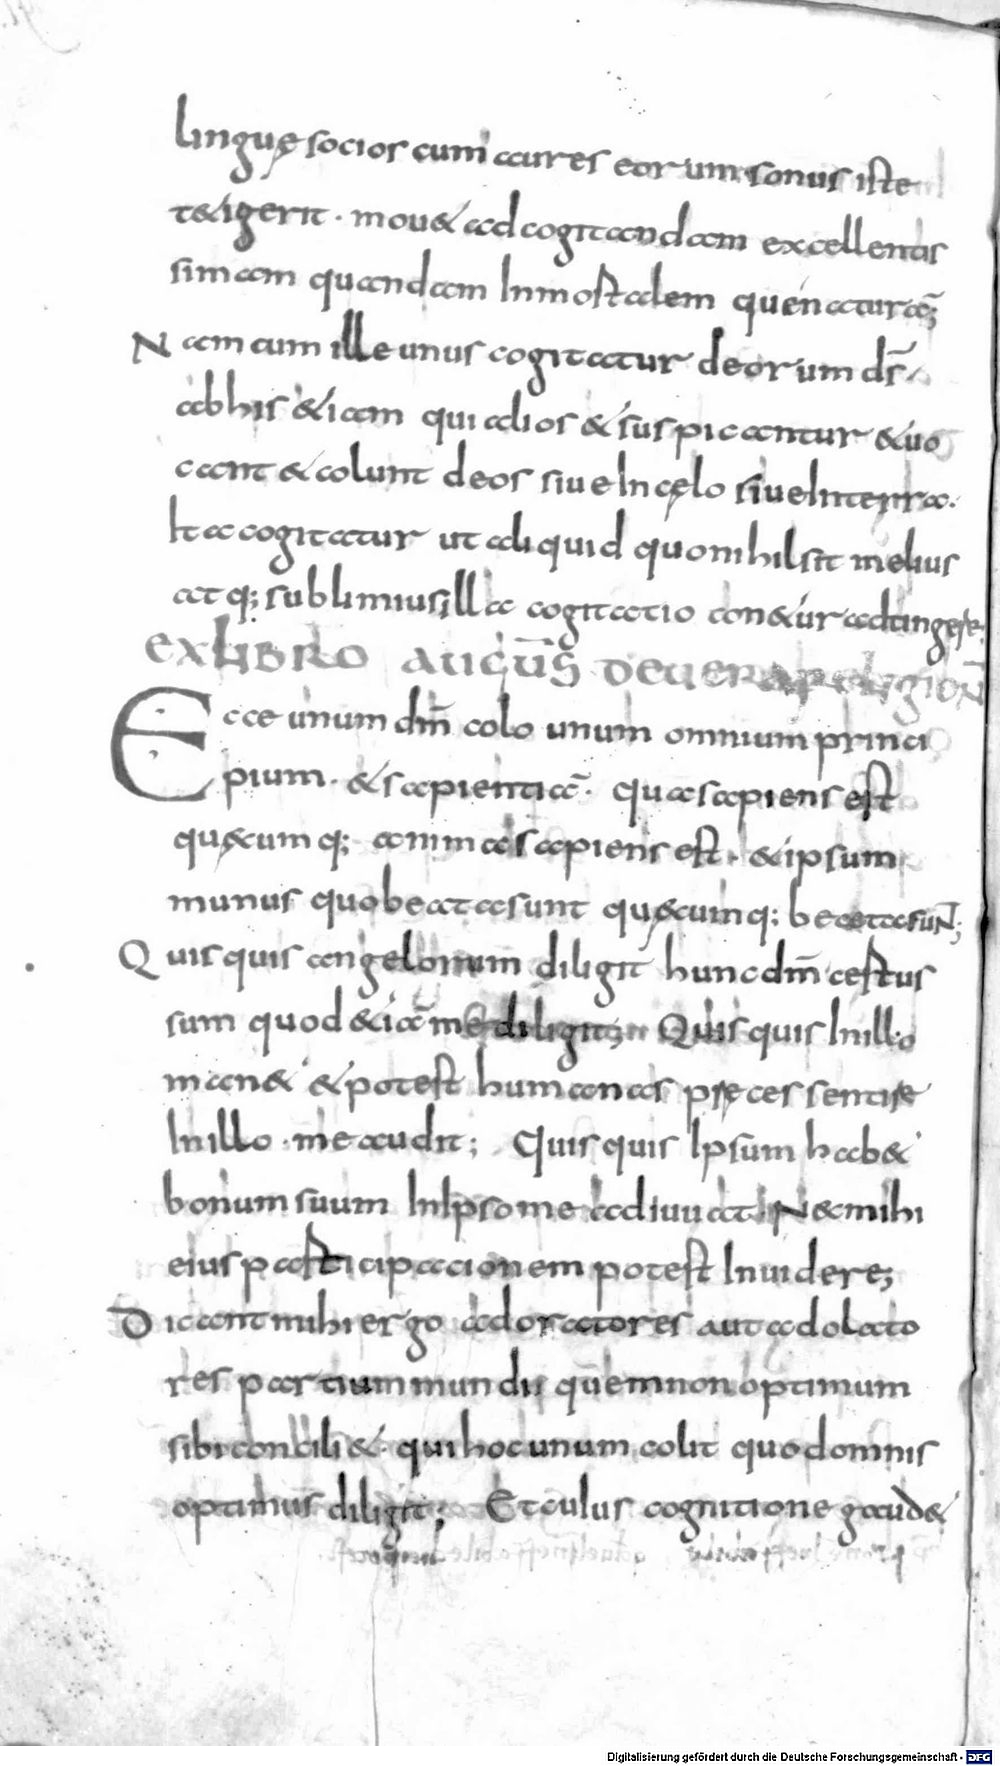 linguę socios cum aures eorum sonus iste
t&igerit · mou& ad cogitandam excellentis
simam quandam Inmortalem quenaturā;
Nam cum ille unus cogitatur deorum ds̄
ab his &iam qui alios & suspicantur & uo
cant & colunt deos siue In cęlo siue Interra.
Ita cogitatur ut aliquid quo nihil sit melius
atq; sublimius illa cogitatio con&ur adtingere
EX LIBRO AUGUS̄ DE UERA religion̄
Ecce unum dm̄ colo unum omnium princi
pium · & sapientiā · qua sapiens est
quęcumq; anima sapiens est · & ipsum
munus quo beata sunt quęcumq; beata sun̄;
Quisquis angelorum diligit hunc dm̄ certus
sum quod &iā me diligit; Quisquis Inillo
man& & potest humanas pręces sentire
Inillo · me audit; Quisquis Ipsum hab&
bonum suum InIpso me adiuuat · Nec mihi
eius participacionem potest Inuidere;
Dicant mihi ergo adoratores aut adolato
res partium mundi quem non optimum
sibi concili& · qui hoc unum colit quod omnis
optimus diligit; Et cuius cognitione gaud&
Digitalisierung gefördert durch die Deutsche Forschungsgemeinschaft - DFG